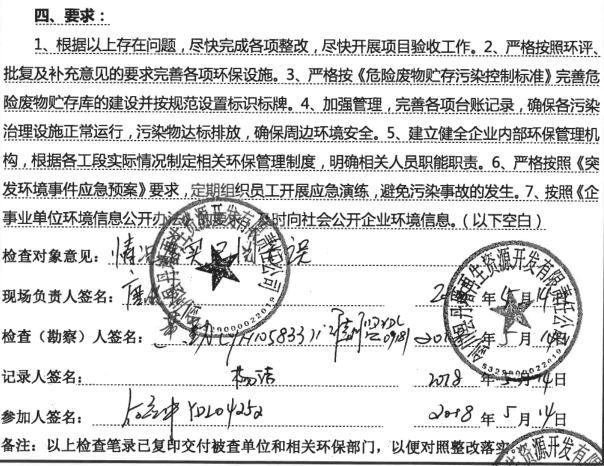 四、要求：
1、根据以上存在问题，尽快完成各项整改，尽快开展项目验收工作。2、严格按照环评、
批复及补充意见的要求完善各项环保设施。3、严格按《危险废物贮存污染控制标准》完善危
险废物贮存库的建设并按规范设置标识标牌。4、加强管理，完善各项台账记录，确保各污染
治理设施正常运行，污染物达标排放，确保周边环境安全。5、建立健全企业内部环保管理机
构，根据各工段实际情况制定相关环保管理制度，明确相关人员职能职责。6、严格按照《突
发环境事件应急预案》要求，定期组织员工开展应急演练，避免污染事故的发生。7、按照《企
事业单位环境信息公开办法 要 及时向社会公开企业环境信息。（以下空白）
检查对象意见：情况 实 误
现场负责人签名： 2018 年 5 月 14 日
检查（勘察）人签名： 2018 年 5 月 14 日
记录人签名：杨洁 2018 年 5 月 14 日
参加人签名： YDL04252 2018 年 5 月 14 日
备注：以上检查笔录已复印交付被查单位和相关环保部门，以便对照整改落实
再生资源开发有限责任公司
5329000022019
资源开发有